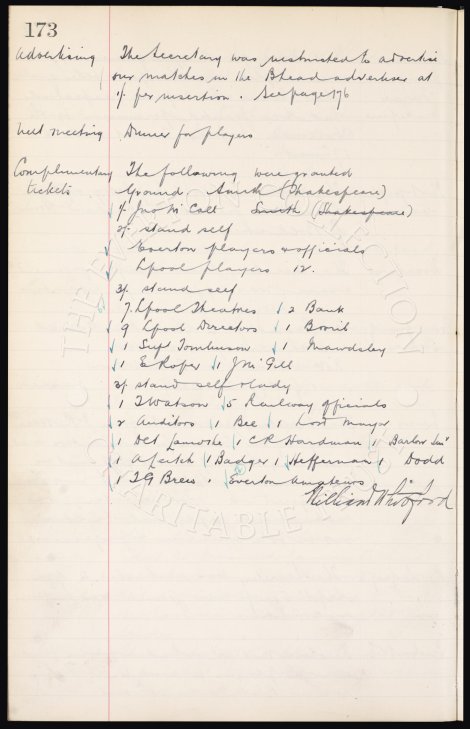 173
Advertising The Secretary was instructed to advertise
our matches in the B'head advertiser at
1/- per insertion. See page 176
next meeting Dinner for players
Complimentary The following were granted
tickets Ground Smith (Shakespeare)
1/- Jno McCall Smith (Shakespeare)
2/- stand self
Everton players & officials
Lpool players 12.
3/- stand self
7 Lpool Theatres 2 Bank
9 Lpool Directors 1
1 Supt Tomlinson 1 Mawdsley
1 E Roper 1 J McGill
3/- stand self & lady
1 T Watson 5 Railway officials
2 Auditors 1 Bee 1 Lord Mayor
1 Det 1 C R Hardman 1 Barlow
1 A Leitch 1 Badger 1 Heffernan 1 Dodd
1 T G Brew . Everton amateurs
William
THE EVERTON COLLECTION
CHARITABLE